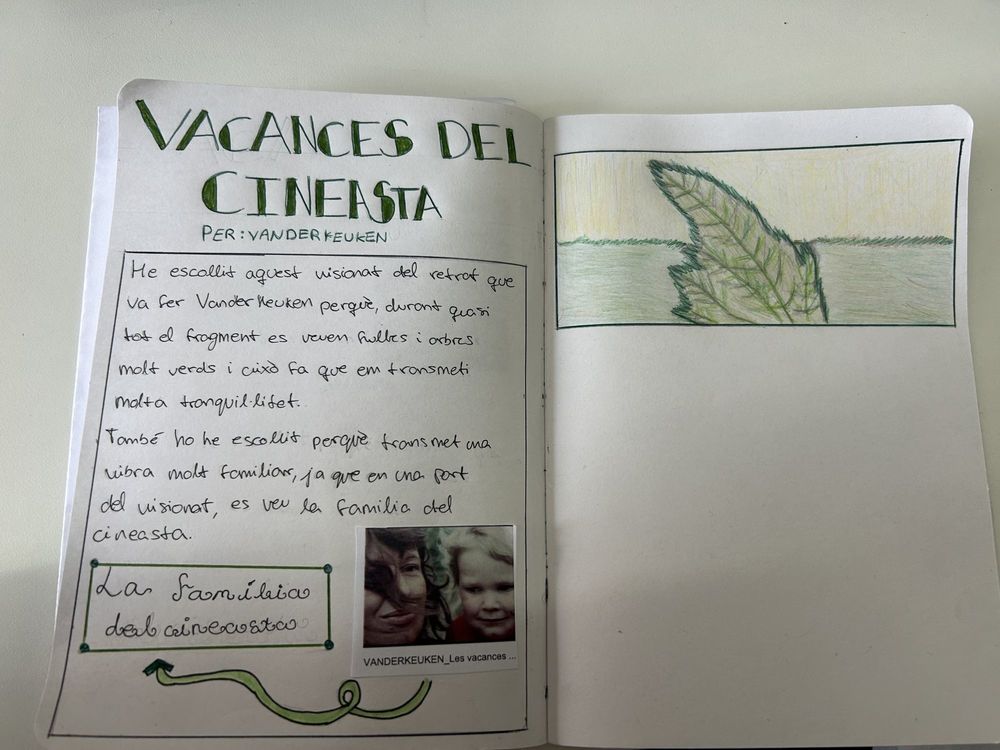 VACANCES DEL
CINEASTA
PER: VANDERKEUKEN
He escollit aquest visionat del retrat que
va fer Vander Keuken perquè, durant quasi
tot el fragment es veuen fulles i arbres
molt verds i això fa que em transmeti
molta tranquil·litat.
També ho he escollit perquè transmet una
vibra molt familiar, ja que en una part
del visionat, es veu la família del
cineasta.
La família
del cineasta
VANDERKEUKEN_Les vacances ...